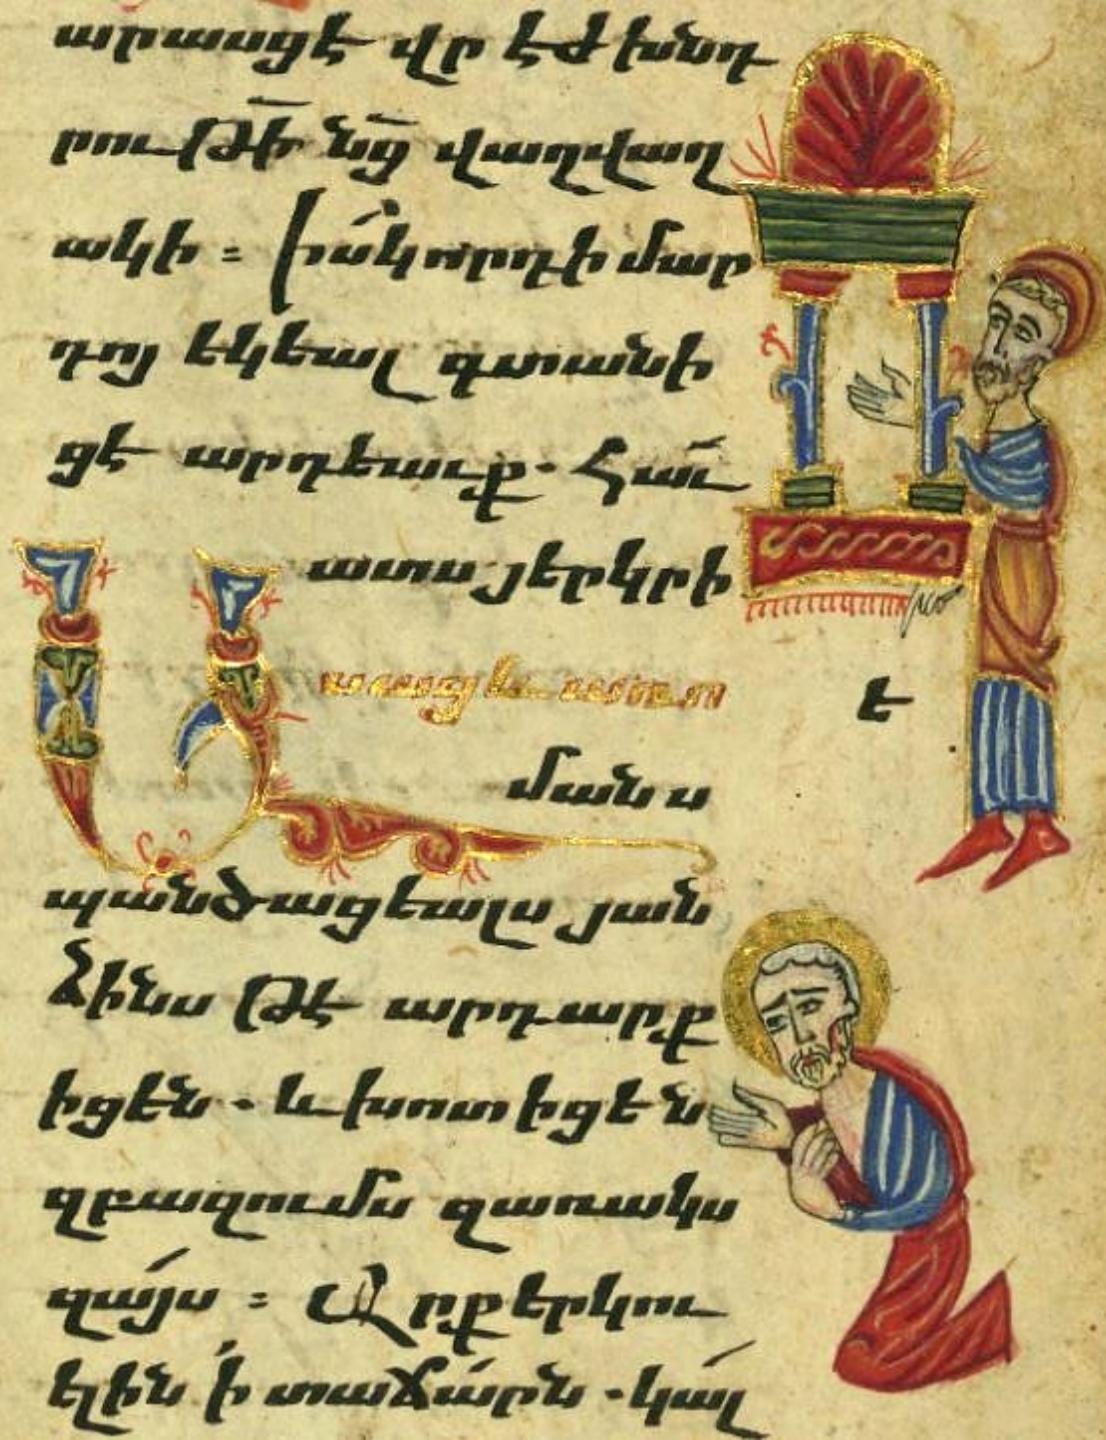 արասցէ վրէժխնդ
րութի̄ նց̄ վաղվաղ
ակի ։ Իսկ որդի մար
դոյ եկեալ գտանի
ցէ արդեաւք. Հաւ
ատս յերկրի
Ասաց և առ ո
է
մանս
պանծացեալս յան
ձինս թէ արդարք
իցեն. և խոտիցեն
զբազումս զառակս
զայս ։ Արք երկու
ելին ի տաճարն. կալ